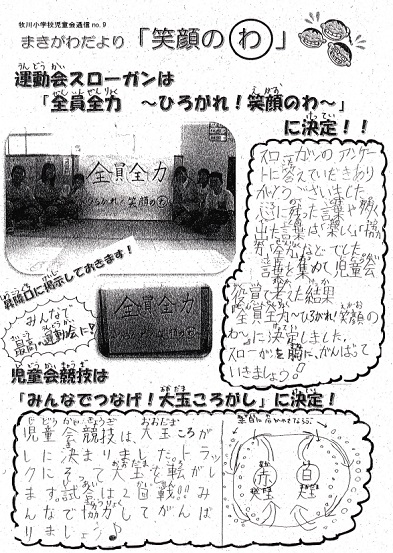 牧川小学校児童会通信 no.9
まきがわだより「笑顔のわ」
運動会スローガンは
「全員全力 ～ひろがれ！笑顔のわ～」
に決定！！
全員全力
ひろがれ！笑顔のわ
昇降口に掲示しておきます！
全員全力
みんなで
最高の運動会に！
スローガンのアンケー
トに答えていただきあり
がとうございました。
心に残った言葉や多く
出た言葉は「楽しく」「協
力」「全力」などでした。
言葉を集めて児童会
役員で考えた結果
「全員全力～ひろがれ！笑顔の
わ～」に決定しました。
スローガンを胸に、がんばって
いきましょう！
児童会競技は
「みんなでつなげ！大玉ころがし」に決定！
児童会競技は、大玉ころが
しに決まりました。トラッ
クにそって大玉を転がし
ます。試合は2回戦!!み
んなで協力してがんば
りましょう♪
赤
白